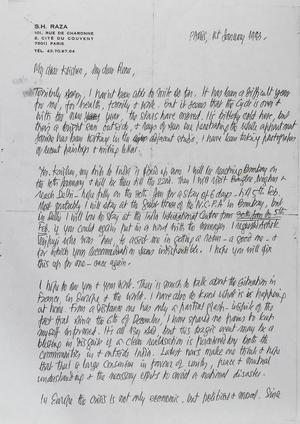 S.H. RAZA
101, RUE DE CHARONNE
2, CITE DU COUVENT
75011 PARIS
TEL. 43.70.87.04
PARIS, 1st January 1993.
My dear Krishen, my dear Renu,
Terribly sorry, I havent been able to write so far. It has been a difficult year
for me, for health, family & work. But it seems that the cycle is over &
with the new year, the stars have moved. It's bitterly cold here, but
there is a bright sun outside, & rays of sun are penetrating the white apartment
Janine has been working in the different studio. I have been taking photographs
of recent paintings & writing letters.
Yes, Krishen, my trip to India is fixed up and I will be reaching Bombay on
the 6th January & will be there till the 22nd. Then I will visit
reach Delhi on the for a stay of 6 days - till 5th Feb.
Most probably I will stay at the Guest House of the N.C.P.A. in Bombay, but
in Delhi I will love to stay at the India International Center from 5th
Feb. if you could again put in a word with the manager
who was kind, to assist me in getting a room - a good one - &
for which your recommendation seems indispensable. I hope you will fix
this up for me - once again.
I hope to see you & your work. There is so much to talk about the situation in
France, in Europe & the world. I have also to know what is happening at
home. From a distance one has only a partial
fact that since the 6th of December, I have spared no pains to keep
myself informed. It's all very sad, but this tragic event may be a
blessing in disguise if a clear realisation is provoked by both the
communities, in & outside India. Latest news make me think & hope
that that a large consensus in favour of unity, peace & mutual
understanding & the necessary efforts to avoid a national disaster.
In Europe the crisis is not only economic, but political & moral. Since